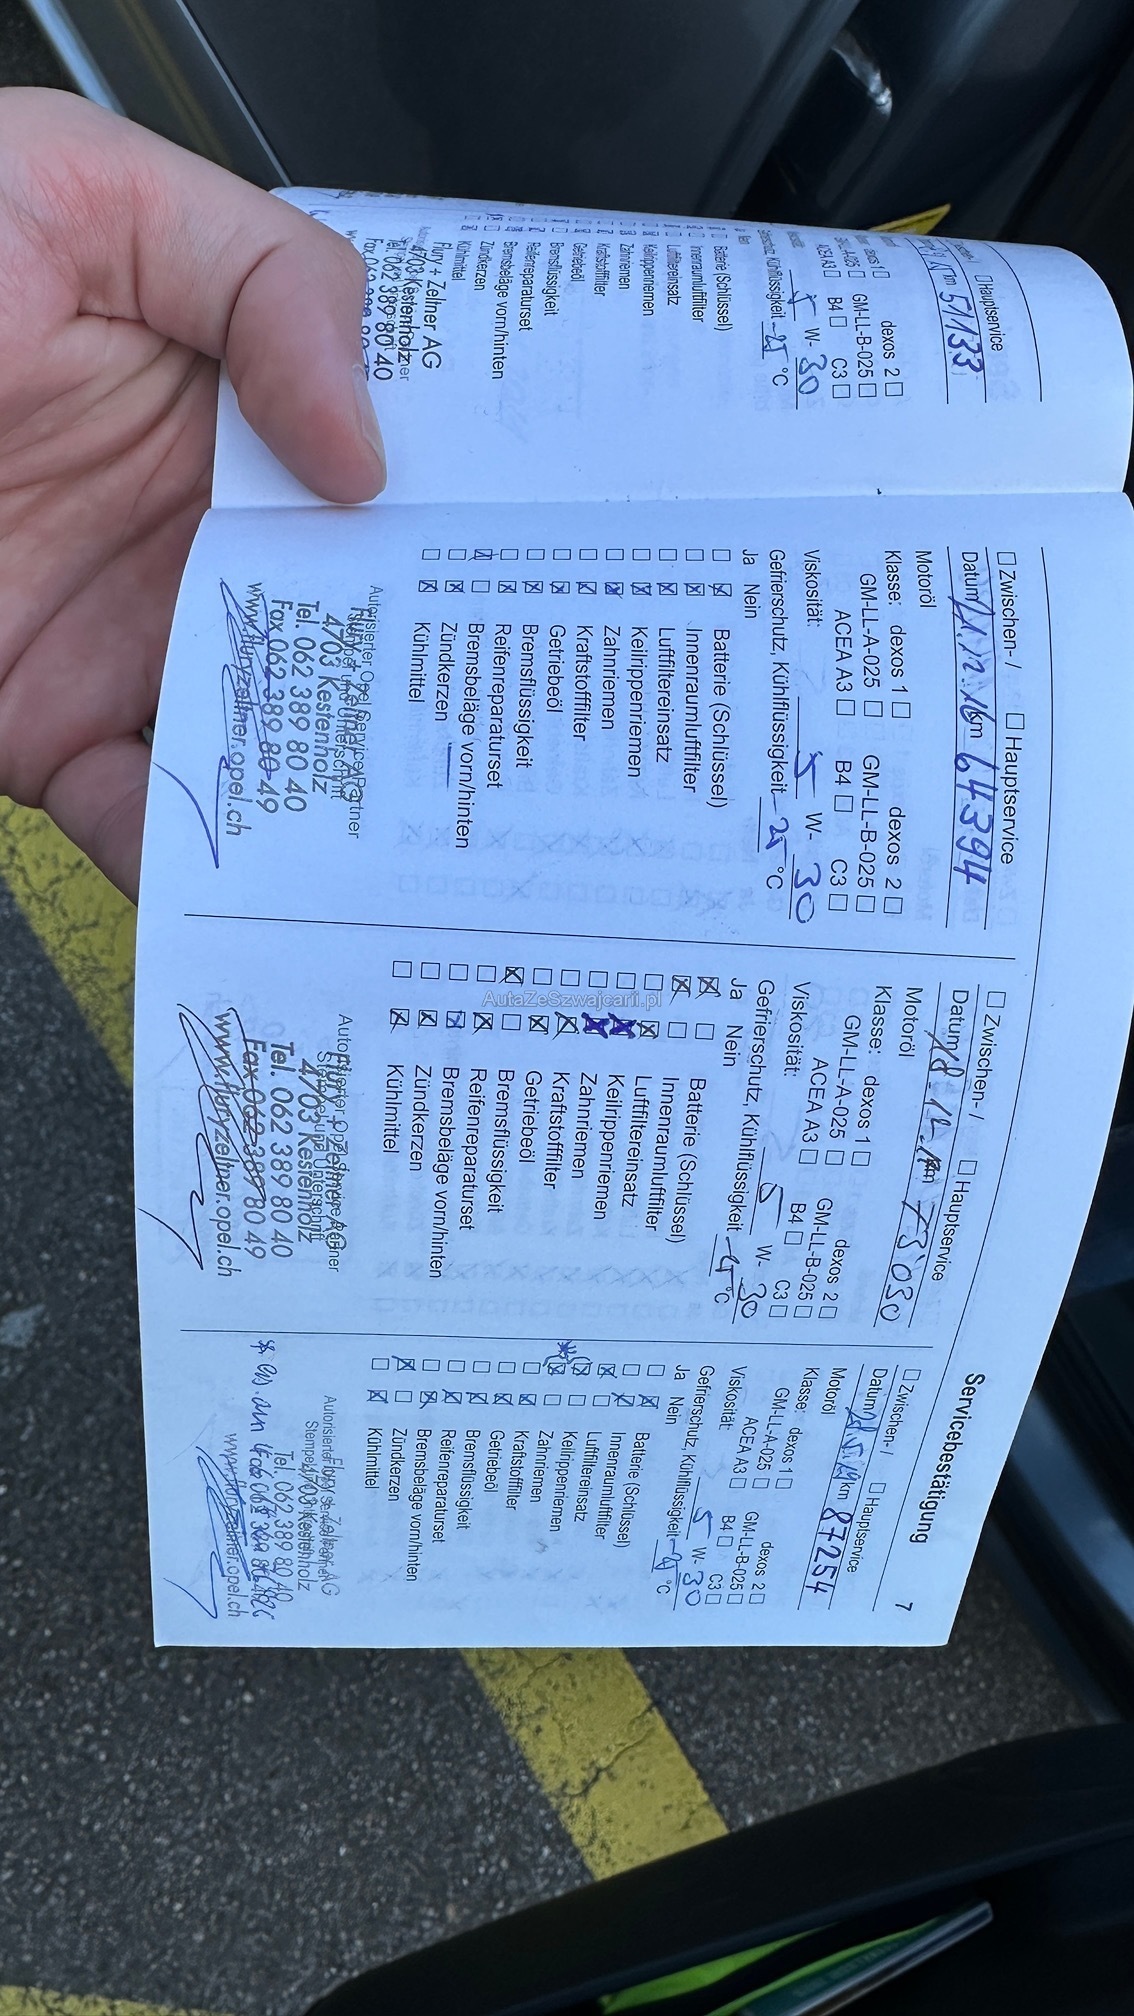 Hauptservice
51133
dexos 1 dexos 2
GM-LL-B-025
B4 C3
5 W- 30
Kühlflüssigkeit -25 °C
Batterie (Schlüssel)
Innenraumluftfilter
Luftfiltereinsatz
Keilrippenriemen
Zahnriemen
Kraftstofffilter
Getriebeöl
Bremsflüssigkeit
Reifenreparaturset
Bremsbeläge vorn/hinten
Zündkerzen
Kühlmittel
Flury + Zeltner AG
4703 Kestenholz
Tel. 062 389 80 40
Zwischen- / Hauptservice
Datum 12.16 km 64394
Motoröl
Klasse: dexos 1 dexos 2
GM-LL-A-025 GM-LL-B-025
ACEA A3 B4 C3
Viskosität: 5 W- 30
Gefrierschutz, Kühlflüssigkeit -25 °C
Ja Nein
Batterie (Schlüssel)
Innenraumluftfilter
Luftfiltereinsatz
Keilrippenriemen
Zahnriemen
Kraftstofffilter
Getriebeöl
Bremsflüssigkeit
Reifenreparaturset
Bremsbeläge vorn/hinten
Zündkerzen
Kühlmittel
Autorisierter Opel Service Partner
4703 Kestenholz
Tel. 062 389 80 40
Fax 062 389 80 49
www.fluryzeltner.opel.ch
Zwischen- / Hauptservice
Datum 18.12. km 73'030
Motoröl
Klasse: dexos 1 dexos 2
GM-LL-A-025 GM-LL-B-025
ACEA A3 B4 C3
Viskosität: 5 W- 30
Gefrierschutz, Kühlflüssigkeit -25 °C
Ja Nein
Batterie (Schlüssel)
Innenraumluftfilter
Luftfiltereinsatz
Keilrippenriemen
Zahnriemen
Kraftstofffilter
Getriebeöl
Bremsflüssigkeit
Reifenreparaturset
Bremsbeläge vorn/hinten
Zündkerzen
Kühlmittel
Autorisierter Opel Service Partner
Stempel und Unterschrift
4703 Kestenholz
Tel. 062 389 80 40
Fax 062 389 80 49
www.fluryzeltner.opel.ch
Servicebestätigung 7
Zwischen- / Hauptservice
Datum km 87254
Motoröl
Klasse: dexos 1 dexos 2
GM-LL-A-025 GM-LL-B-025
ACEA A3 B4 C3
Viskosität: 5 W- 30
Gefrierschutz, Kühlflüssigkeit °C
Ja Nein
Batterie (Schlüssel)
Innenraumluftfilter
Luftfiltereinsatz
Keilrippenriemen
Zahnriemen
Kraftstofffilter
Getriebeöl
Bremsflüssigkeit
Reifenreparaturset
Bremsbeläge vorn/hinten
Zündkerzen
Kühlmittel
4703 Kestenholz
Tel. 062 389 80 40
www.fluryzeltner.opel.ch
AutaZeSzwajcarii.pl